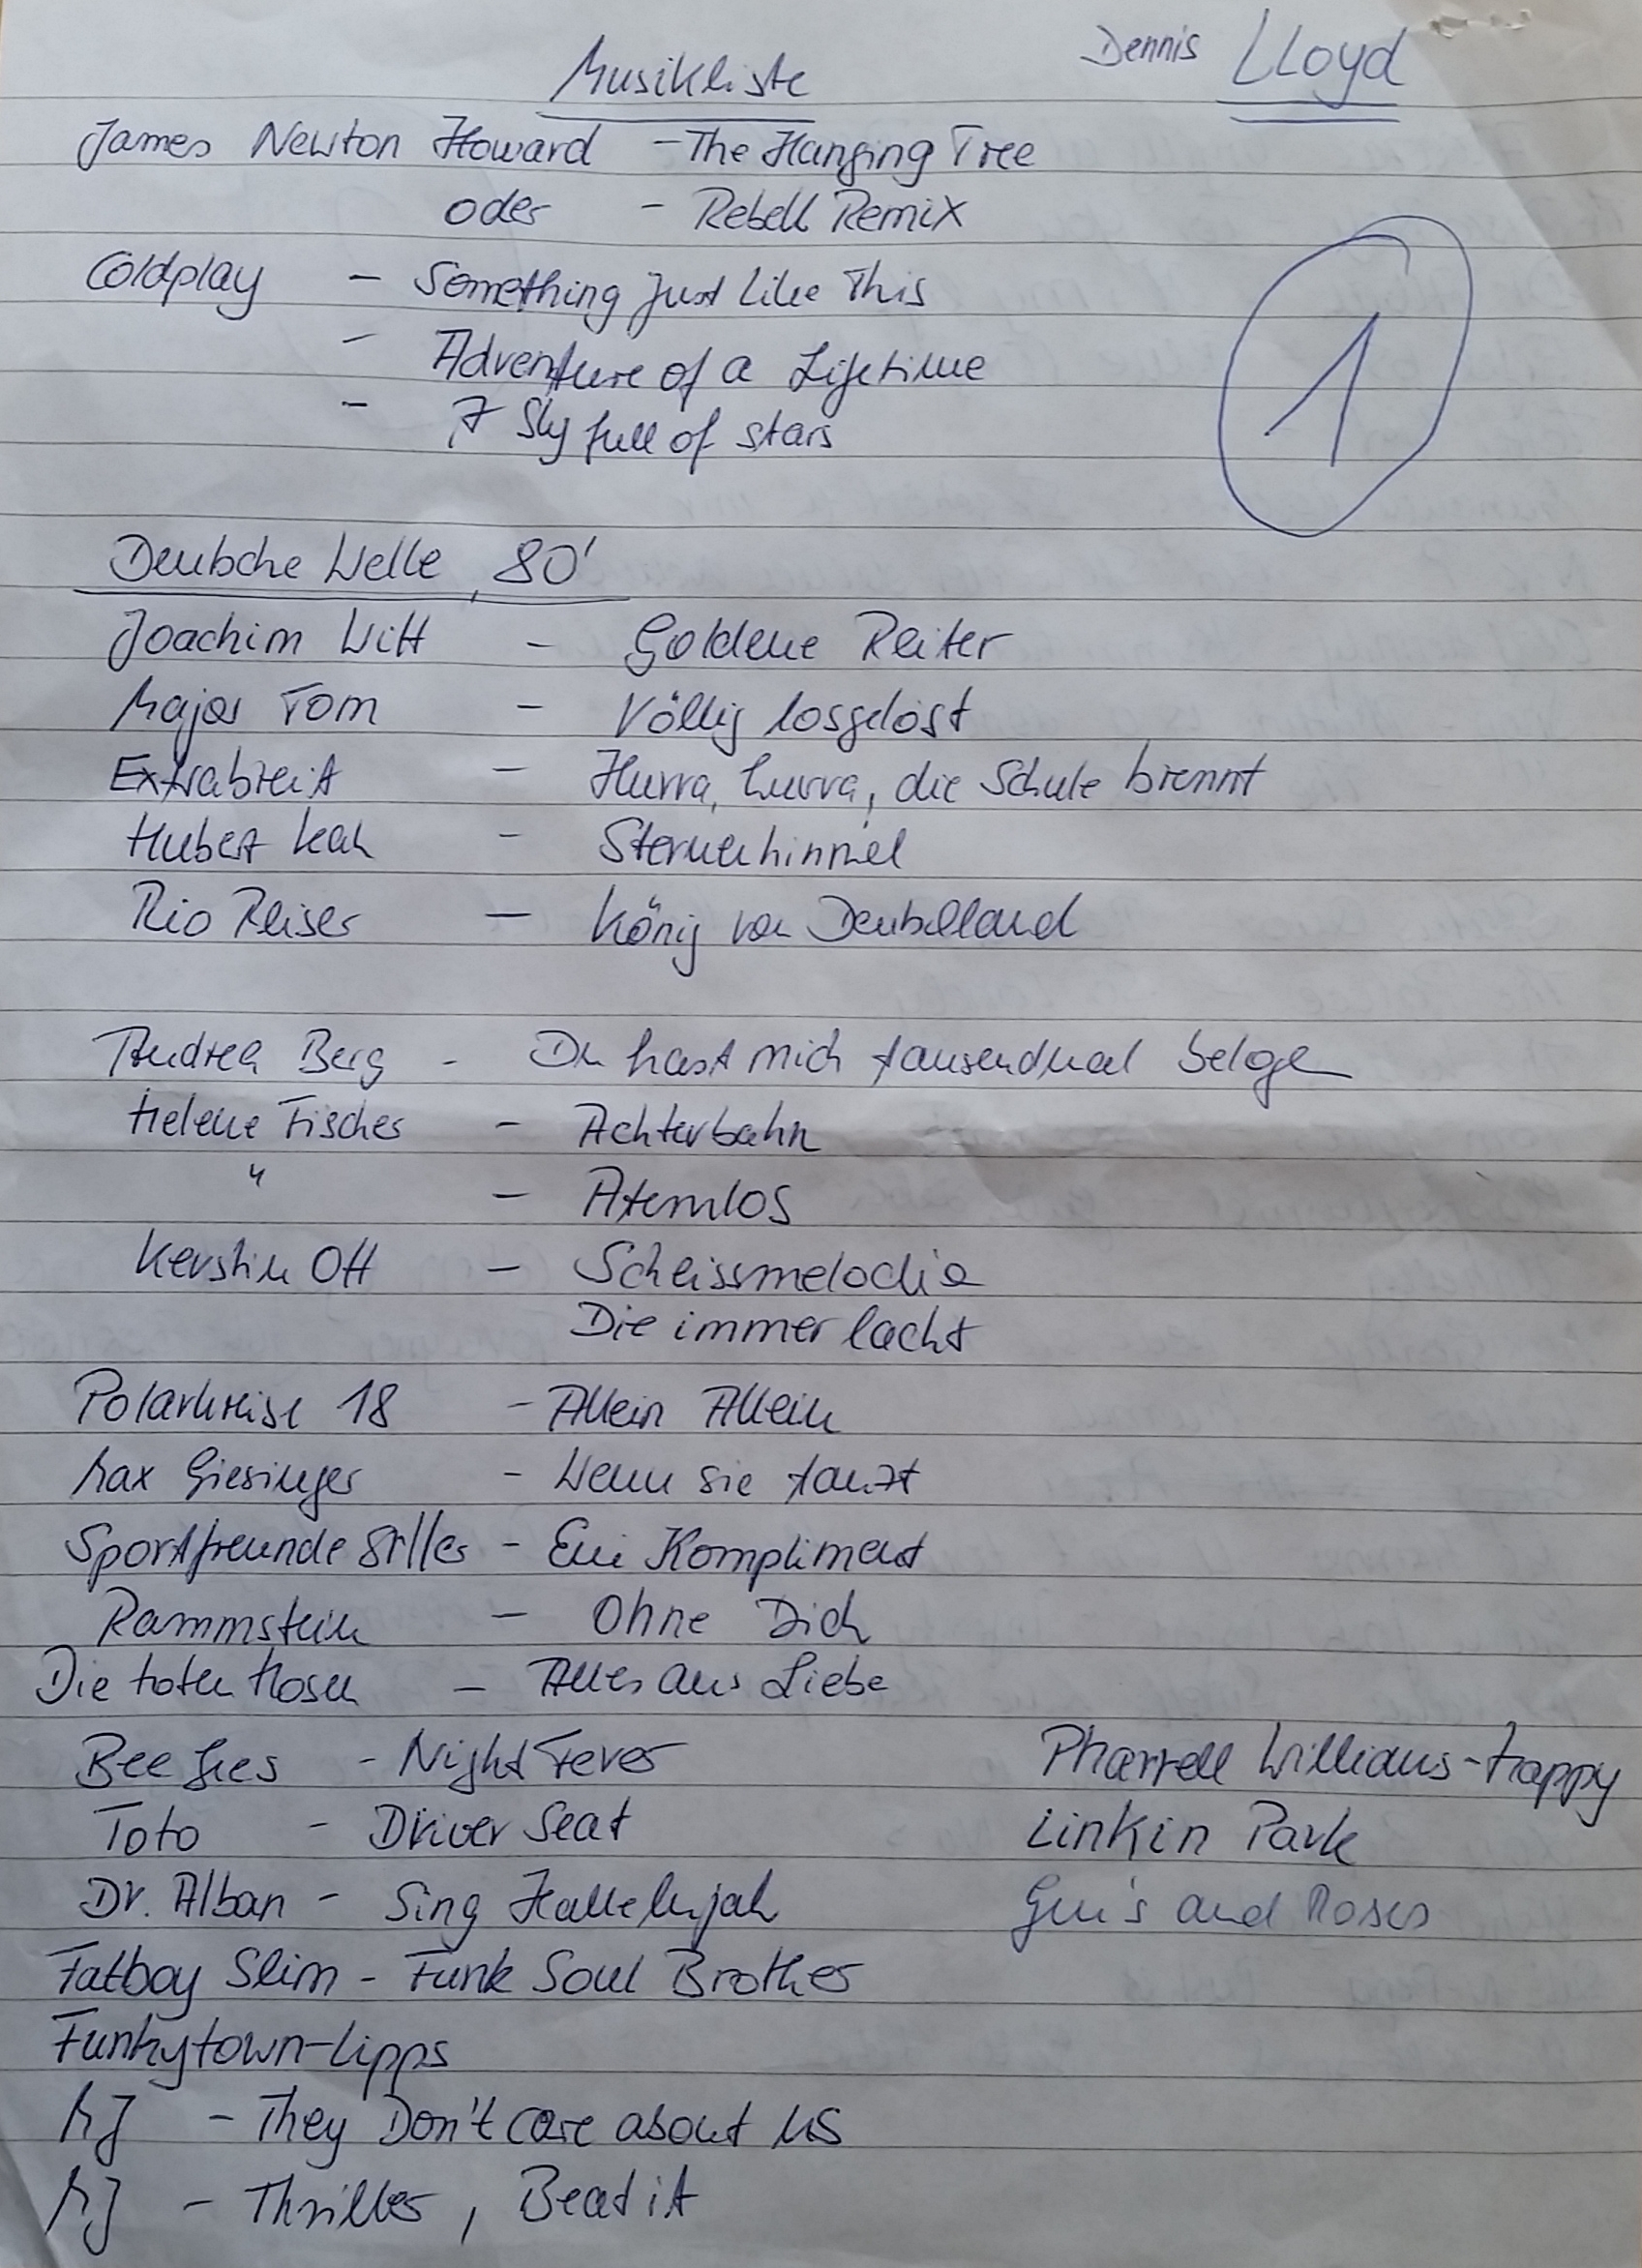 Musikliste
Dennis LLoyd
James Newton Howard - The Hanging Tree
oder - Rebell Remix
Coldplay - Something Just Like This
- Adventure of a Lifetime
- A Sky full of stars
1
Deutsche Welle, 80'
Joachim Witt - Goldene Reiter
Major Tom - Völlig losgelöst
Extrabreit - Hurra, hurra, die Schule brennt
Hubert Kah - Sternenhimmel
Rio Reiser - König von Deutschland
Andrea Berg - Du hast mich tausendmal belogen
Helene Fischer - Achterbahn
" - Atemlos
Kerstin Ott - Scheissmelodie
Die immer lacht
Polarkreise 18 - Allein Allein
Max Giesinger - Wenn sie tanzt
Sportfreunde Stiller - Ein Kompliment
Rammstein - Ohne Dich
Die toten Hosen - Alles aus Liebe
Bee Gees - Night Fever
Pharrell Williams - Happy
Toto - Driver Seat
Linkin Park
Dr. Alban - Sing Hallelujah
Gun's and Roses
Fatboy Slim - Funk Soul Brother
Funkytown-Lipps
MJ - They Don't care about us
MJ - Thriller, Beat it